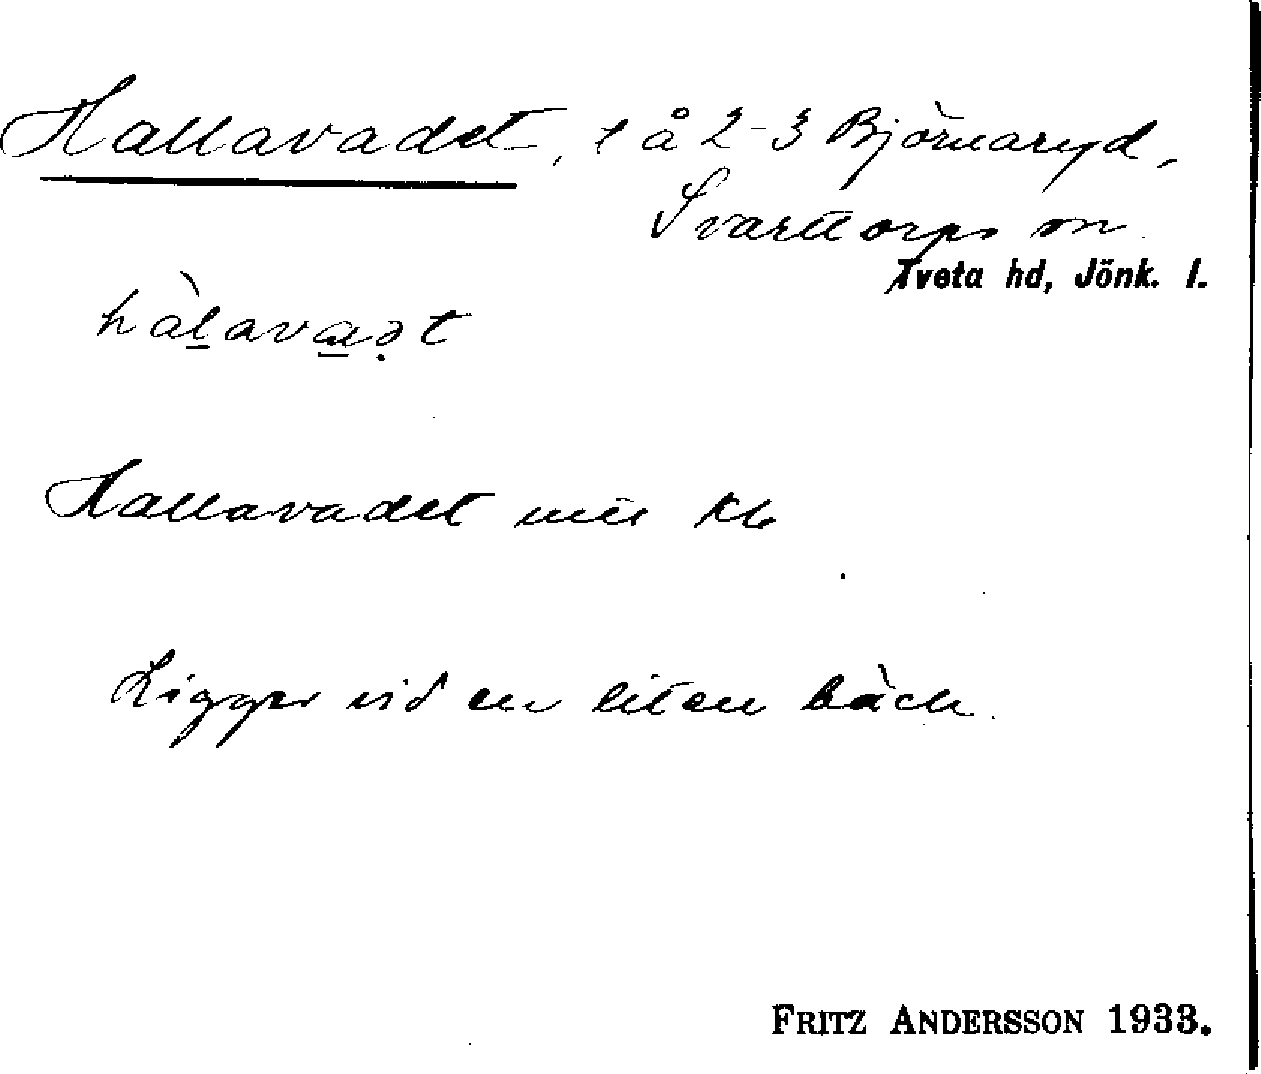 Hallavadet, t å 2-3 Björnaryd,
Svarttorps sn
Tveta hd, Jönk. l.
hàlavadət
Hallavadet
Ligger vid en liten bäck.
FRITZ ANDERSSON 1933.